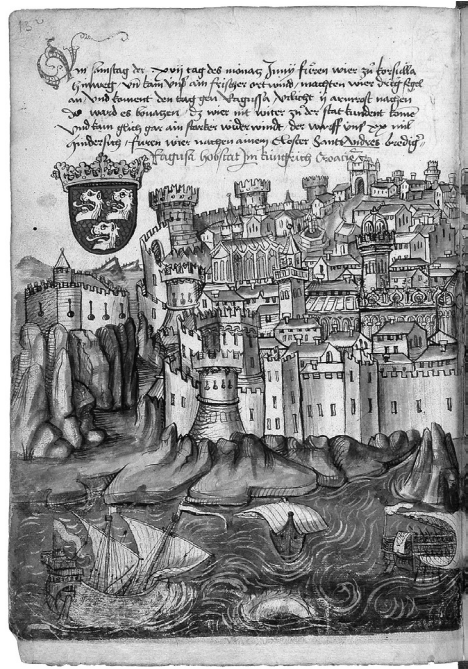 Am samstag der xvij tag des monatz Junij fůren wier zů korsulla
hinweg Vn kam vnß ain frischer ort wind machten wier segel
an vnd koment den tag gen Ragussa vilicht ij armrost nachen
Do ward es bonatzen Dz wier nit witer zů der stat kundent kome
Vnd kam glich gar ain starker wider wind der warff vns xx mil
hindersich furen wier nachen ainem Closter Sant Andres bredig
Ragusa hobstat Jm kungkrich Croacie